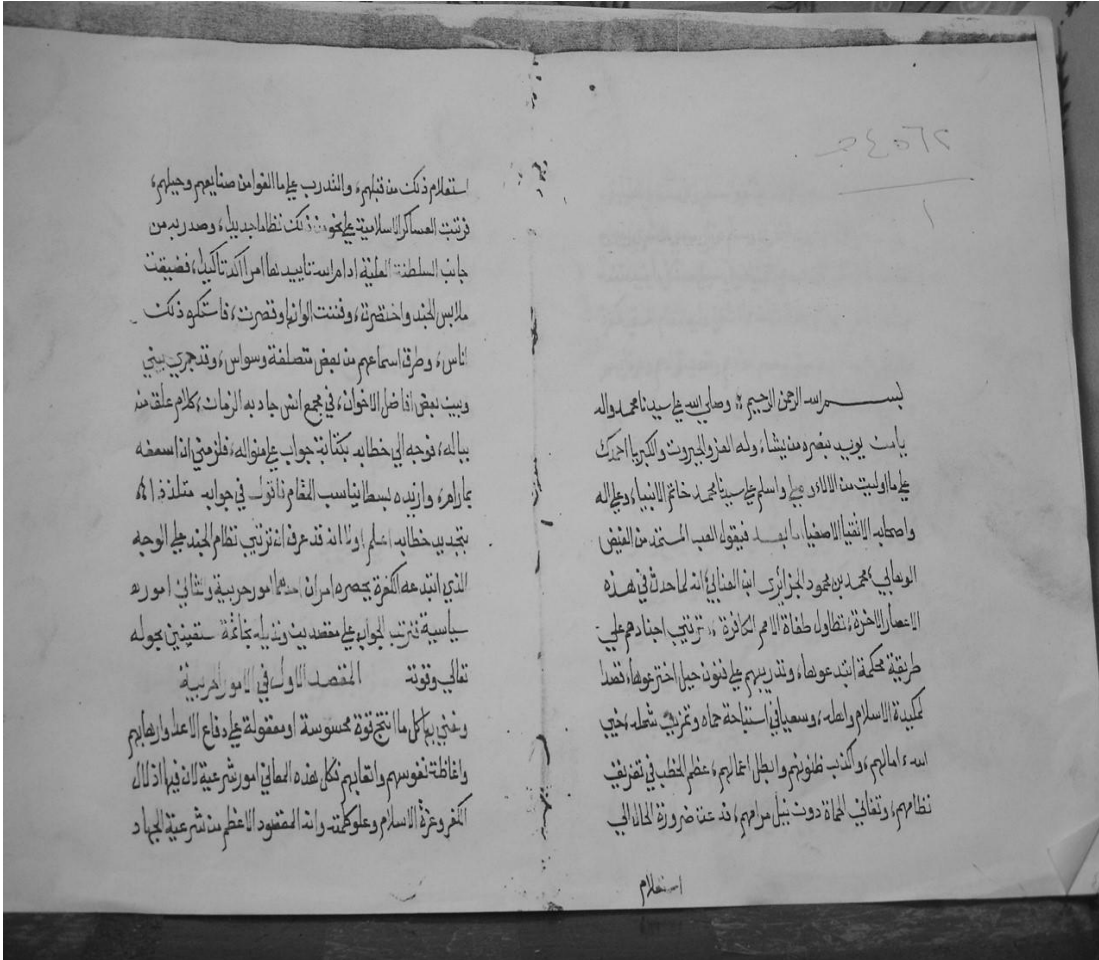 ٤٥٦٢ ج
١
بسم الله الرحمن الرحيم وصلي الله علي سيدنا محمد واله
يامن يويد بنصره من يشاء، وله العز والجبروت والكبريا احمدك
علي ما اوليت من الالاء واسلم علي سيدنا محمد خاتم الانبياء وعلي اله
واصحابه الاتقيا الاصفيا اما بعد فيقول العبد المستمد من الفيض
الوهابي، محمد بن محمود الجزائري ابن العنابي، انه لما حدث في هذه
الاعصار الاخرة، تطاول طغاة الامم الكافرة، ترتيب اجنادهم علي
طريقة محكمة ابتدعوها، وتدريبهم علي فنون حيل اخترعوها، قصدا
لمكيدة الاسلام واهله، وسعيا في استباحة حماه وتمزيق شمله، خيب
الله، امالهم، واكذب ظنونهم وابطل اعمالهم، عظم الخطب في تفريق
نظامهم، وتفاني الحماة دون نيل مرامهم، فدعت ضرورة الحال الي
استعلام
استعلام ذلك من قبلهم، والتدرب علي ما الفوا من صنايعهم وحيلهم،
فرتبت العساكر الاسلامية علي نحو من ذلك نظاما جديدا، وصدر به من
جانب السلطنة العلية ادام الله تاييدها امرا اكد تاكيدا، فضيقت
ملابس الجند واختصرت، وفننت الوانها وقصرت، فاستنكر ذلك
اناس، وطرق اسماعهم من بعض متصلفة وسواس، وقد جري بيني
وبين بعض افاضل الاخوان، في مجمع انس جاد به الزمان، كلام علق منه
بباله، فوجه الي خطابه بكتابة جواب علي منواله، فلزمني ان اسعفه
بمرامه، وازيده بسطا يناسب المقام فاقول في جوابه متلذذا
بتجديد خطابه اعلم اولا انه قد عرف ان ترتيب نظام الجند علي الوجه
الذي ابتدعه الكفرة يحصره امران احدهما امور حربية والثاني امور
سياسية فنرتب الجواب علي مقصدين ونذيله بخاتمة مستعينين بحوله
تعالي وقوته المقصد الاول في الامور الحربية
ونعني بها كل ما انتج قوة محسوسة او معقولة علي دفاع الاعدا وارهابهم
واغاظة نفوسهم واتعابهم فكل هذه المعاني امور شرعية لان فيها اذلال
الكفر وعزة الاسلام وعلو كلمته وانه المقصود الاعظم من شرعية الجهاد